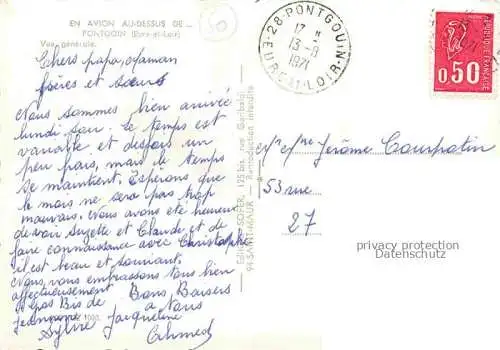 EN AVION AU-DESSUS DE ...
PONTGOIN (Eure-et-Loir)
Vue générale.
Chers papa, maman
frères et sœurs
Nous sommes bien arrivé
lundi soir. Le temps est
variable et depuis un
peu frais, mais le temps
se maintient. Espérons que
le mois ne sera pas trop
mauvais. Nous avons été heureux
de voir Suzette et Claude et de
faire connaissance avec Christophe
il est beau et souriant.
Nous vous embrassons tous bien
affectueusement Bons Baisers
Gros Bis de à tous
Jeannine Jacqueline
Sylvie Ahmed
28-PONTGOUIN
17 H
13-8
1971
EURE-ET-LOIR
0,50
POSTES
REPUBLIQUE FRANÇAISE
SOFER, 195 bis, rue Garibaldi
94-SAINT-MAUR - Reproduction interdite
Mr Mme Jérôme Courpotin
53 rue
27
privacy protection
Datenschutz